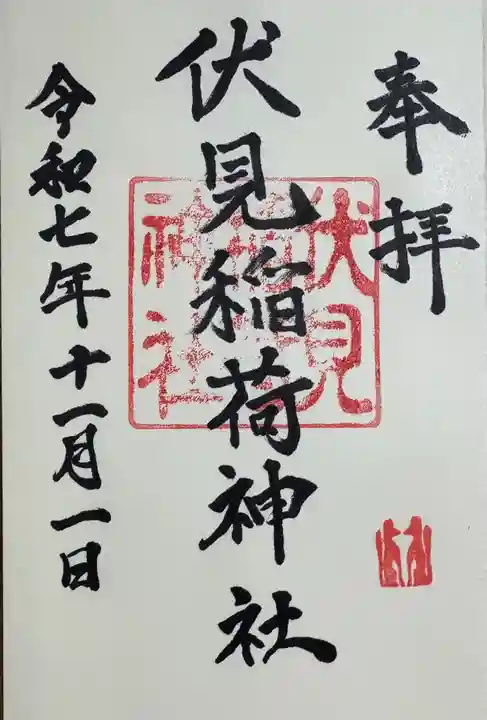 奉拝
伏見稲荷神社
伏見
稲荷
神社
令和七年十一月一日